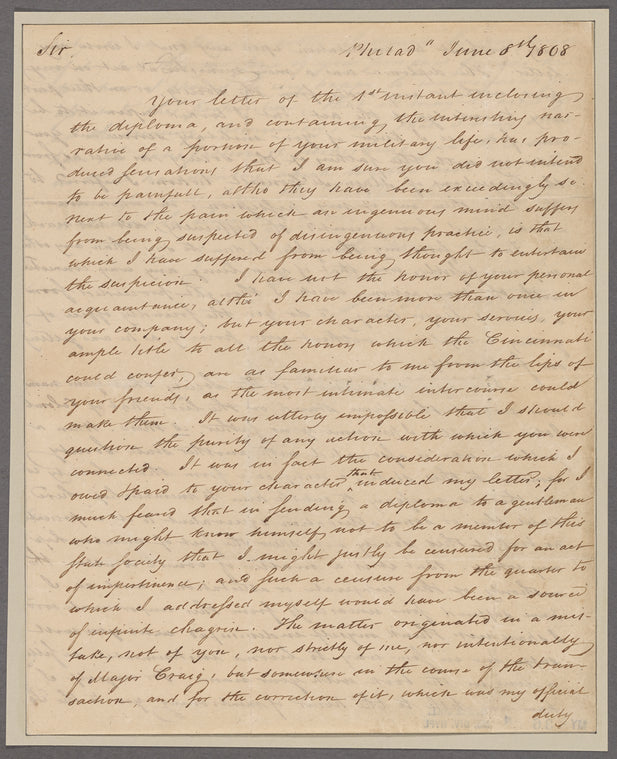 Sir, Philad.a June 8th 1808
Your letter of the 1st instant inclosing
the diploma, and containing the interesting nar-
rative of a portion of your military life, has pro-
duced sensations that I am sure you did not intend
to be painfull, altho they have been exceedingly so.
next to the pain which an ingenuous mind suffers
from being suspected of disingenuous practice, is that
which I have suffered from being thought to entertain
the suspicion. I have not the honor of your personal
acquaintance, altho' I have been more than once in
your company; but your character, your services, your
ample title to all the honors which the Cincinnati
could confer, are as familiar to me from the lips of
your friends, as the most intimate intercourse could
make them. It was utterly impossible that I should
question the purity of any action with which you were
connected. It was in fact the consideration which I
owed & paid to your character that induced my letter, for I
much feared that in sending a diploma to a gentleman
who might know himself not to be a member of this
State Society that I might justly be censured for an act
of impertinence; and such a censure from the quarter to
which I addressed myself would have been a source
of infinite chagrin. The matter originated in a mis-
take, not of you, nor strictly of me, nor intentionally
of Major Craig, but somewhere in the course of the tran-
saction, and for the correction of it, which was my official
duty